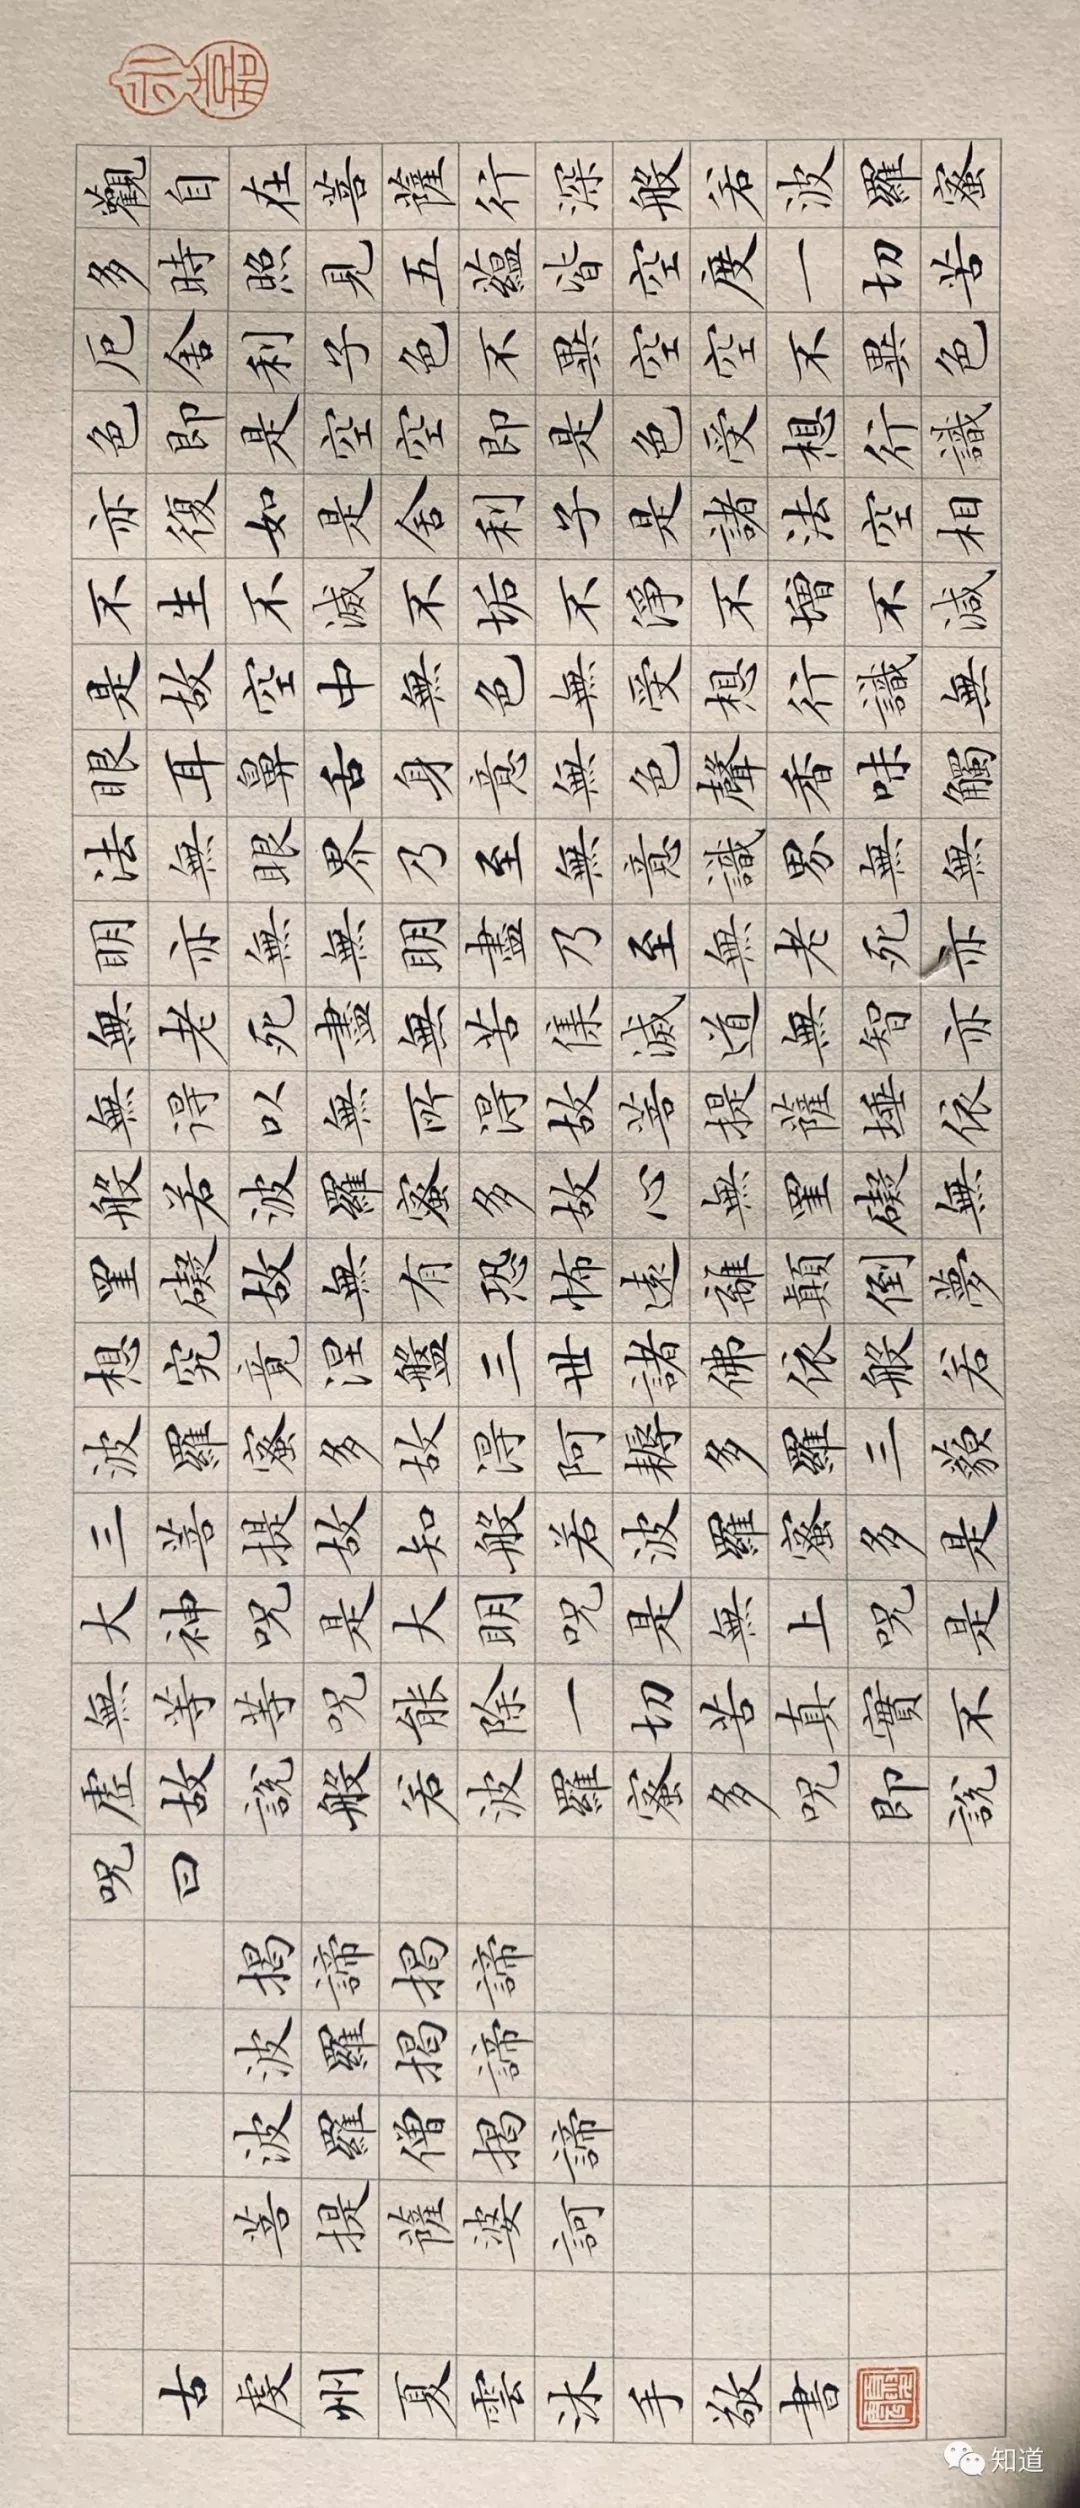 觀自在菩薩行深般若波羅蜜
多時照見五蘊皆空度一切苦
厄舍利子色不異空空不異色
色即是空空即是色受想行識
亦復如是舍利子是諸法空相
不生不滅不垢不淨不增不減
是故空中無色無受想行識無
眼耳鼻舌身意無色聲香味觸
法無眼界乃至無意識界無無
明亦無無明盡乃至無老死亦
無老死盡無苦集滅道無智亦
無得以無所得故菩提薩埵依
般若波羅蜜多故心無罣礙無
罣礙故無有恐怖遠離顛倒夢
想究竟涅盤三世諸佛依般若
波羅蜜多故得阿耨多羅三藐
三菩提故知般若波羅蜜多是
大神咒是大明咒是無上咒是
無等等咒能除一切苦真實不
虛故說般若波羅蜜多咒即說
咒曰
揭諦揭諦
波羅揭諦
波羅僧揭諦
菩提薩婆訶
古虔州夏雲沐手敬書
知道